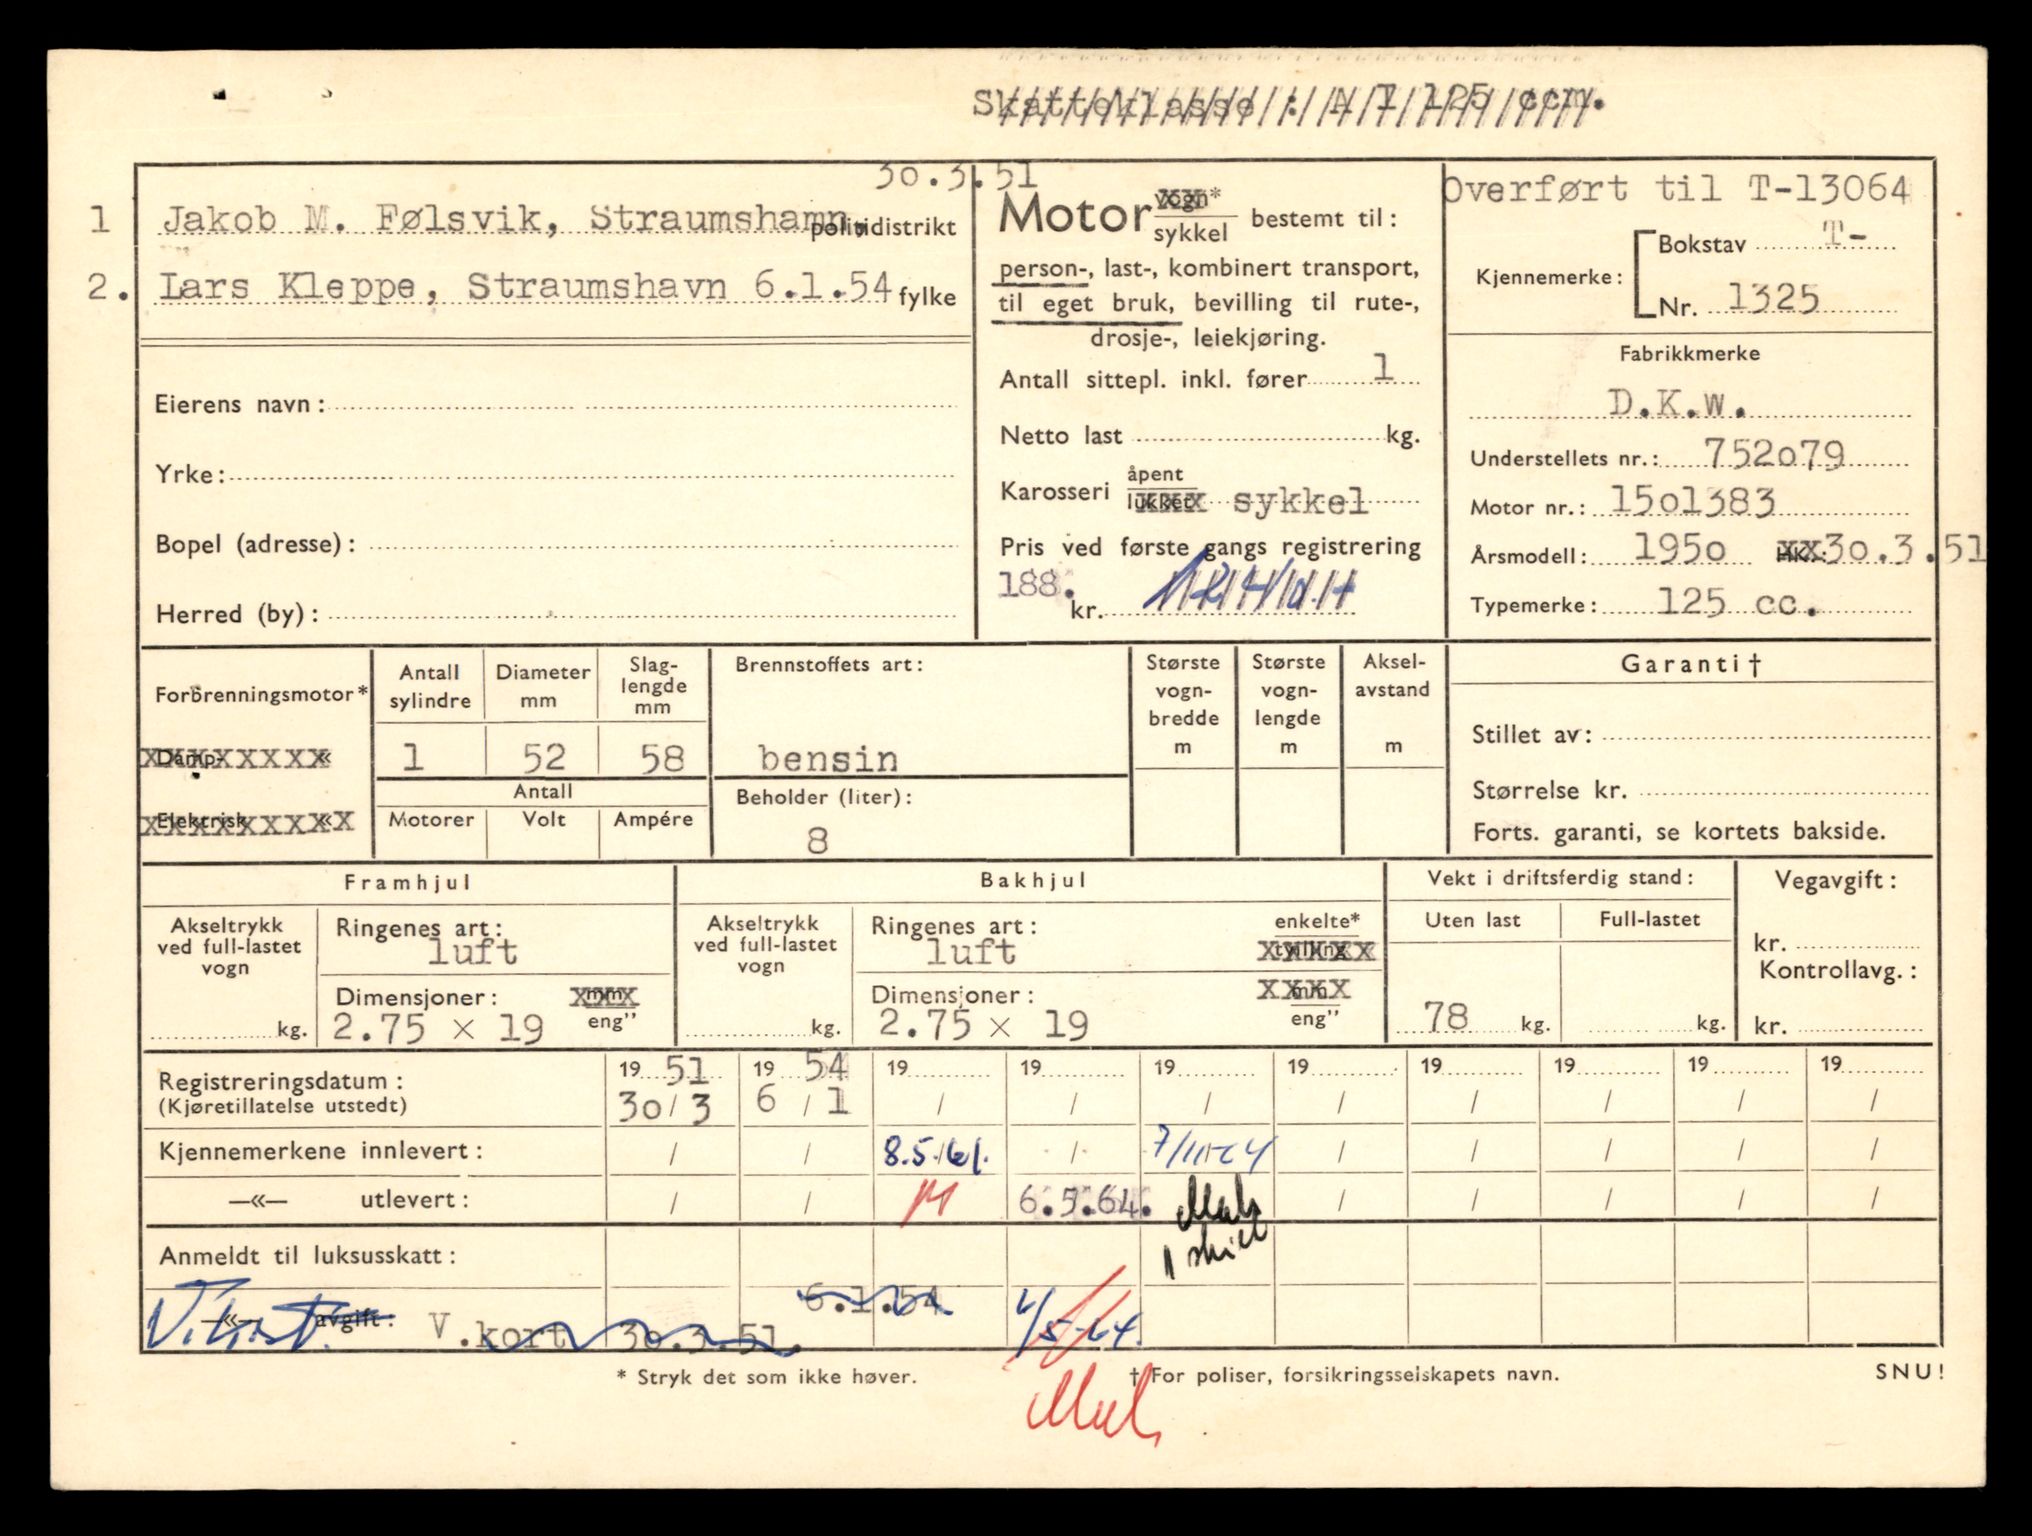 Skatteklasse : A 1 125 ccm.
30.3.51
1 Jakob M. Følsvik, Straumshamn. politidistrikt
2. Lars Kleppe, Straumshavn 6.1.54 fylke
Eierens navn :
Yrke :
Bopel (adresse) :
Herred (by) :
Motor vogn*
sykkel bestemt til :
person-, last-, kombinert transport,
til eget bruk, bevilling til rute-,
drosje-, leiekjøring.
Antall sittepl. inkl. fører 1
Netto last kg.
Karosseri åpent
lukket sykkel
Pris ved første gangs registrering
188.
kr.
Overført til T-13064
Kjennemerke : Bokstav T-
Nr. 1325
Fabrikkmerke
D.K.W.
Understellets nr. : 752o79
Motor nr. : 15o1383
Årsmodell : 195o HK. : 3o.3.51
Typemerke : 125 cc.
Forbrenningsmotor*
Damp- «
Elektrisk «
Antall sylindre
Diameter mm
Slag-lengde mm
1 52 58
Antall
Motorer Volt Ampére
Brennstoffets art :
bensin
Beholder (liter) :
8
Største vogn-bredde m
Største vogn-lengde m
Aksel-avstand m
Garanti †
Stillet av :
Størrelse kr.
Forts. garanti, se kortets bakside.
Framhjul
Akseltrykk ved full-lastet vogn
kg.
Ringenes art :
luft
Dimensjoner : mm
eng”
2.75 x 19
Bakhjul
Akseltrykk ved full-lastet vogn
kg.
Ringenes art : enkelte*
luft tvilling
Dimensjoner : mm
eng”
2.75 x 19
Vekt i driftsferdig stand :
Uten last Full-lastet
78 kg. kg.
Vegavgift :
kr.
Kontrollavg. :
kr.
Registreringsdatum : 19 51 19 54 19 19 19 19 19 19 19 19
(Kjøretillatelse utstedt) 3o / 3 6 / 1 / / / / / / / /
Kjennemerkene innlevert : / / 8.5.61. / / / / / /
—«— utlevert : / / M 6.5.64. Mek / / / / /
1 skilt
Anmeldt til luksusskatt :
6.1.54
—«— avgift : V.kort V.kort 3o.3.51. 4/5-64.
* Stryk det som ikke høver.
† For poliser, forsikringsselskapets navn.
SNU!